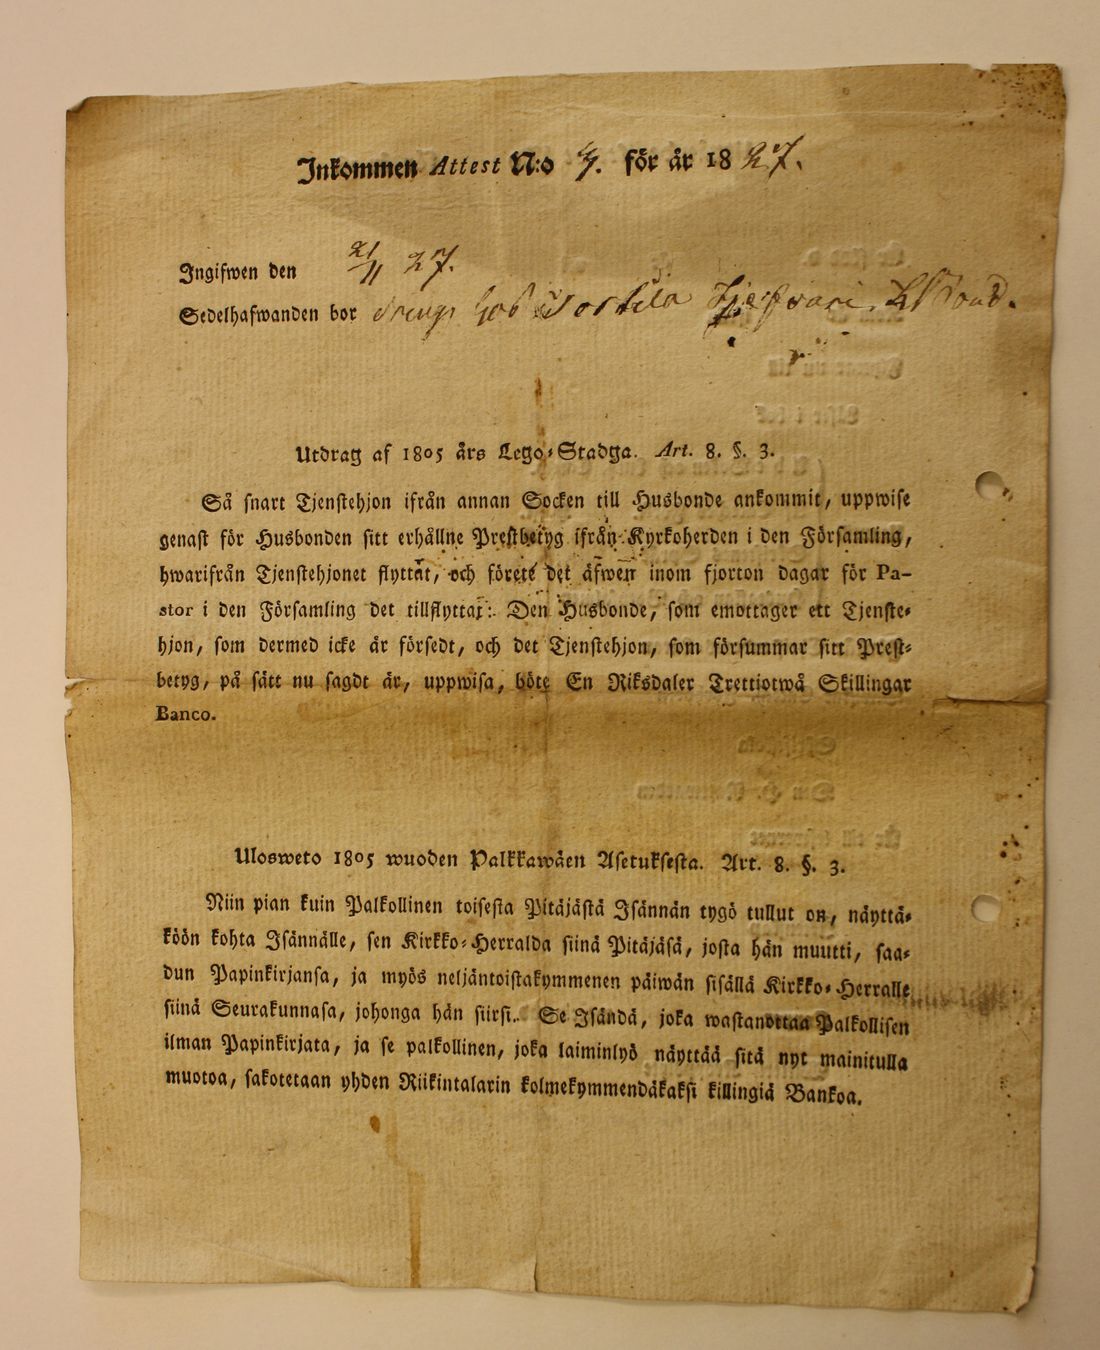 Inkommen Attest N:o 4/7. för år 1827.
Ingifwen den 21/11 27.
Sedelhafwanden bor dreng Tortila
Utdrag af 1805 års Lego-Stadga. Art. 8. §. 3.
Så snart Tjenstehjon ifrån annan Socken till Husbonde ankommit, uppwise
genast för Husbonden sitt erhållne Prestbetyg ifrån Kyrkoherden i den Församling,
hwarifrån Tjenstehjonet flyttat, och förete det äfwen inom fjorton dagar för Pa-
stor i den Församling det tillflyttar. Den Husbonde, som emottager ett Tjenste-
hjon, som dermed icke är försedt, och det Tjenstehjon, som försummar sitt Prest-
betyg, på sätt nu sagdt är, uppwisa, böte En Riksdaler Trettiotwå Skillingar
Banco.
Ulosweto 1805 wuoden Palkkawäen Asetuksesta. Art. 8. §. 3.
Niin pian kuin Palkollinen toisesta Pitäjästä Isännän tygö tullut on, näyttä-
köön kohta Isännälle, sen Kirkko-Herralda siinä Pitäjäsä, josta hän muutti, saa-
dun Papinkirjansa, ja myös neljäntoistakymmenen päiwän sisällä Kirkko-Herralle
siinä Seurakunnasa, johonga hän siirsi. Se Isändä, joka wastanottaa Palkollisen
ilman Papinkirjata, ja se palkollinen, joka laiminlyö näyttää sitä nyt mainitulla
muotoa, sakotetaan yhden Riikintalarin kolmekymmendäkaksi killingiä Bankoa.